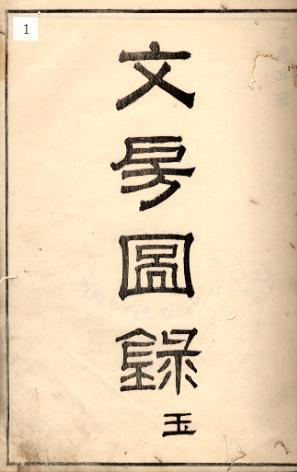 1
文房圖錄
玉